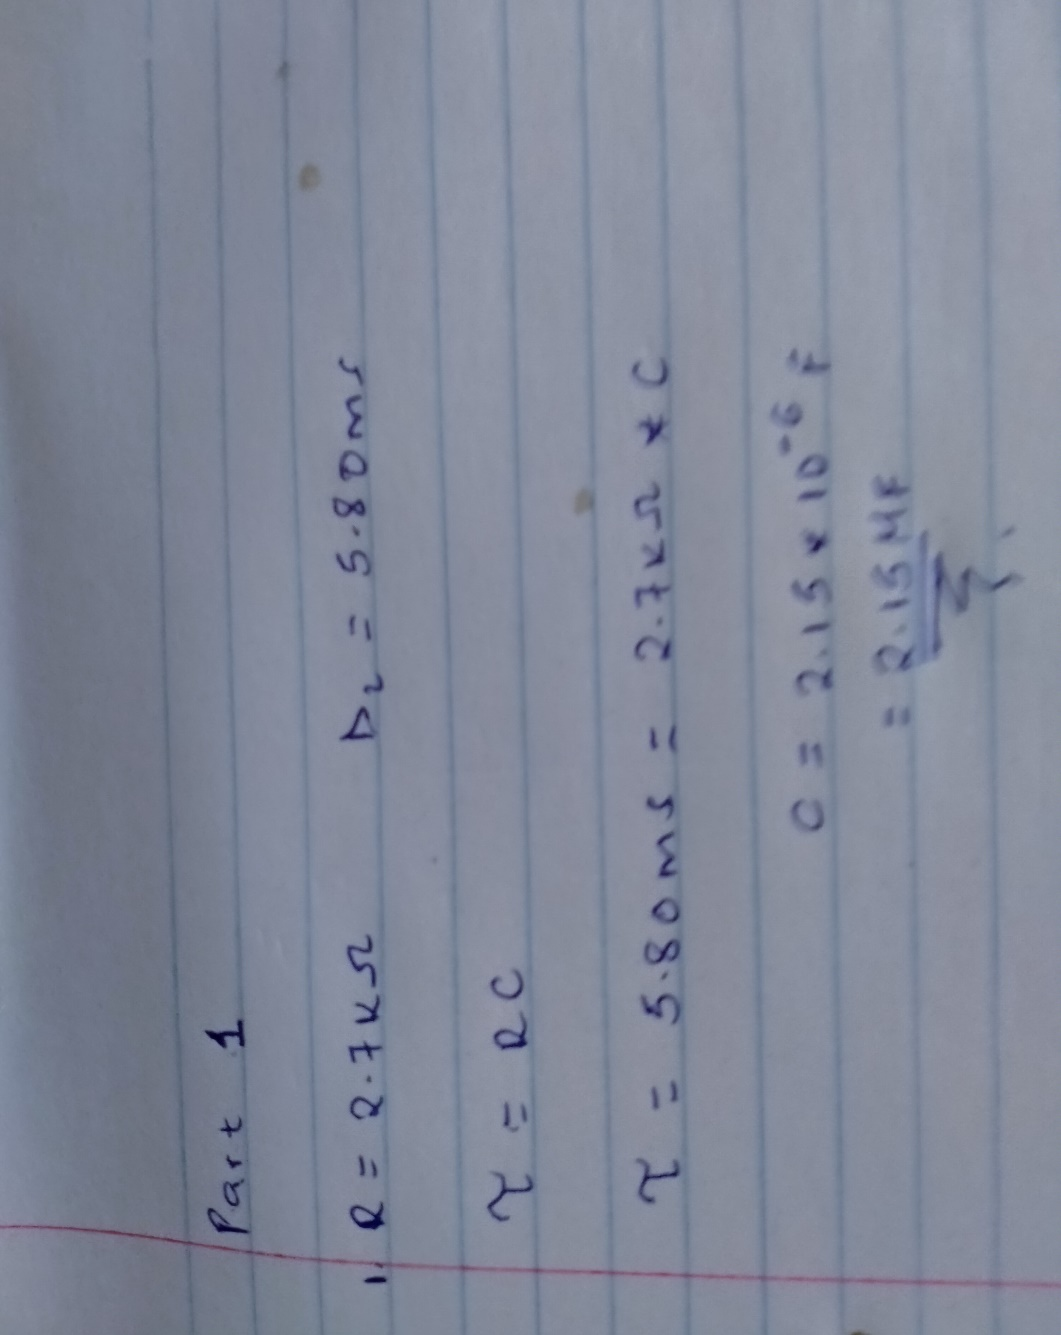 Part 1
1. R = 2.7KΩ D₂ = 5.80ms
τ = RC
τ = 5.80ms = 2.7KΩ * C
C = 2.15 × 10⁻⁶ F
= 2.15 MF